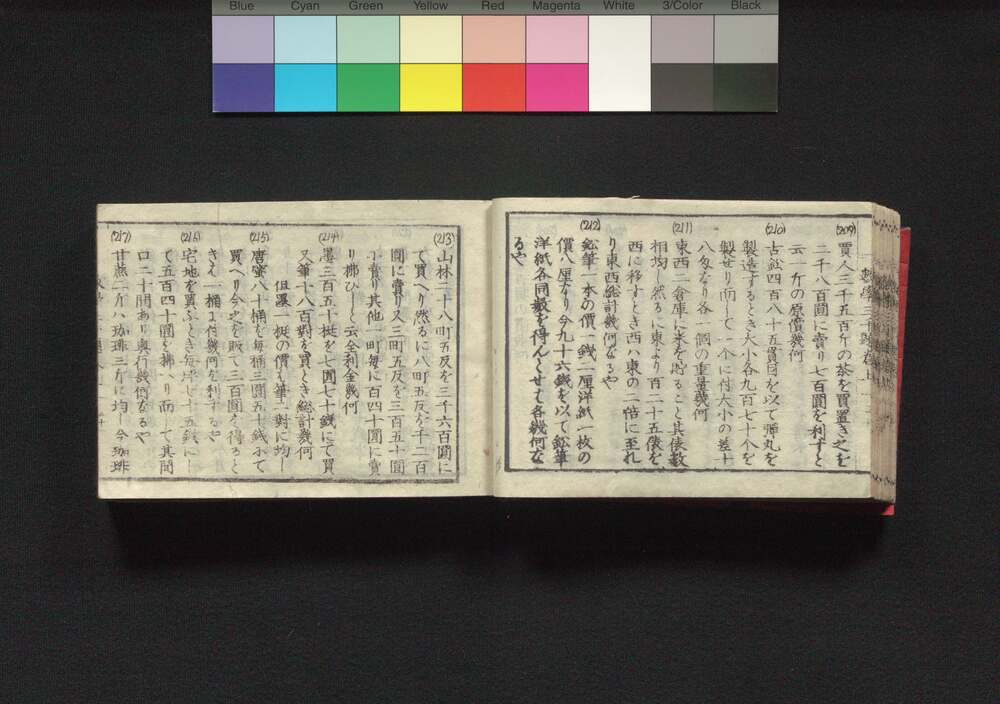 Blue Cyan Green Yellow Red Magenta White 3/Color Black
(209)
賈人三千五百斤の茶を買置き之を
二千八百圓に賣り七百圓を利すと
云一斤の原價幾何
(210)
古鉛四百八十五貫目を以て彈丸を
製造するとき大小各九百七十个を
製せり而して一个に付大小の差十
八匁なり各一個の重量幾何
(211)
東西二倉庫に米を貯ること其俵數
相均し然るに東より百二十五俵を
西に移すとき西ハ東の二倍に至れ
り東西総計幾何なるや
(212)
鉛筆一本の價一錢二厘洋紙一枚の
價八厘なり今九十六錢を以て鉛筆
洋紙各同數を得んとせば各幾何な
るや
(213)
山林二十八町五反を三千六百圓に
て買へり然るに八町五反を千二百
圓に賣り又三町五反を三百五十圓
に賣り其他一町毎に百四十圓に賣
り拂ひしと云全利金幾何
(214)
墨三百五十挺を七圓七十錢にて買
又筆十八百對を買ふとき総計幾何
但墨一挺の價は筆一對に均し
(215)
唐蜜八十桶を毎桶三圓五十錢にて
買へり今之を販て三百圓を得ると
きは一桶に付幾何を利するや
(216)
宅地を買ふとき毎坪七十五錢にし
て五百四十圓を拂へり而して其間
口二十間あり奥行幾何なるや
(217)
甘蔗二斤ハ珈琲三斤に均し今珈琲